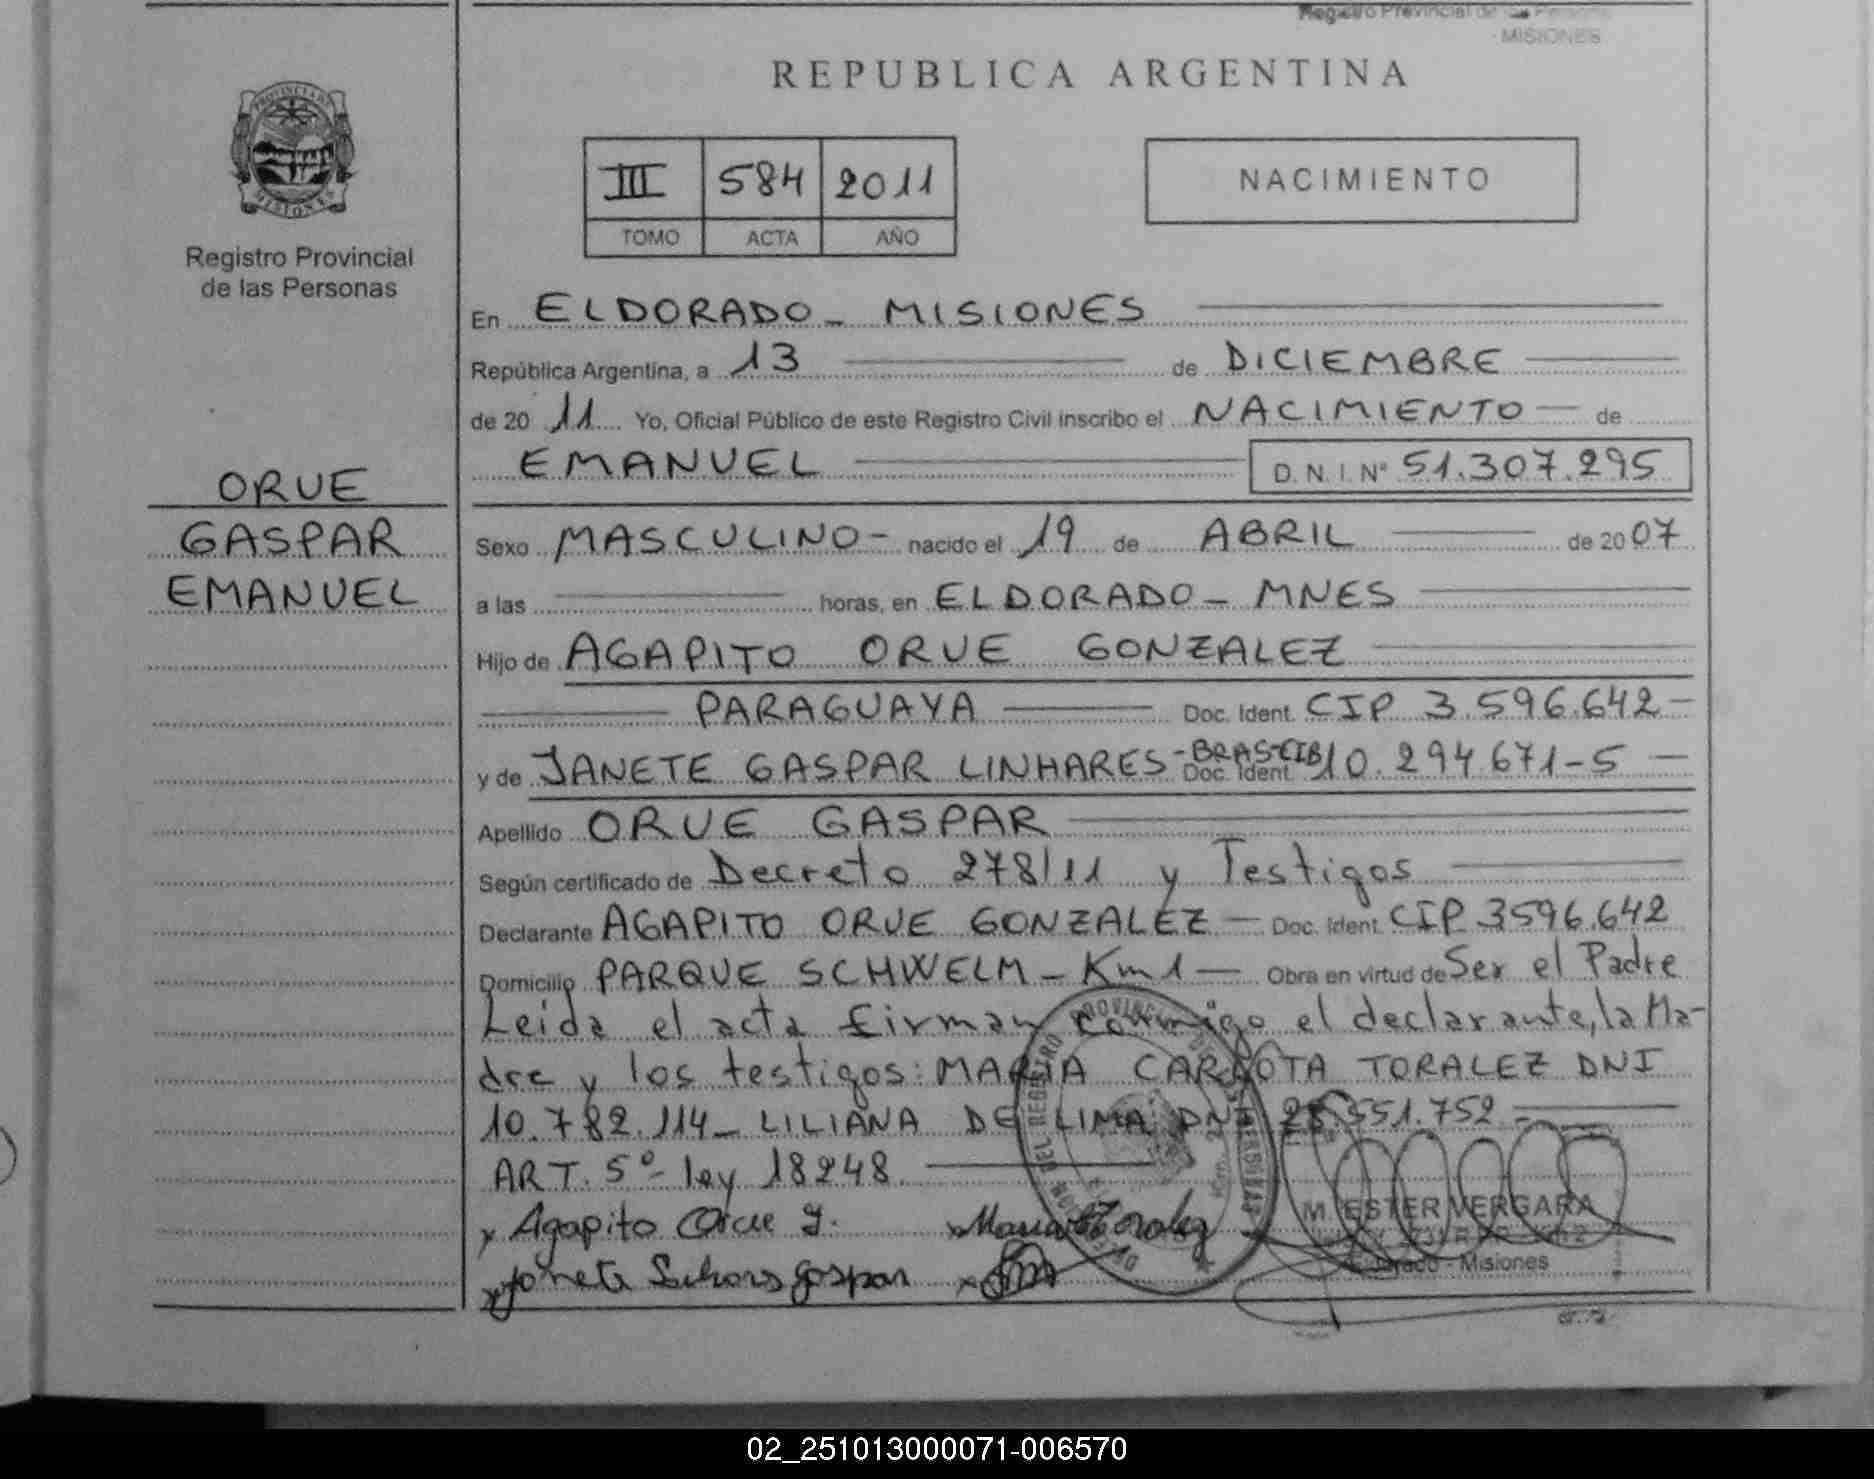 Registro Provincial de las Personas
MISIONES
REPUBLICA ARGENTINA
PROVINCIA DE
MISIONES
Registro Provincial
de las Personas
III 584 2011
TOMO ACTA AÑO
NACIMIENTO
En ELDORADO - MISIONES
República Argentina, a 13 de DICIEMBRE
de 20 11 Yo, Oficial Público de este Registro Civil inscribo el NACIMIENTO de
EMANUEL D.N.I. Nº 51.307.295
ORUE
GASPAR
EMANUEL
Sexo MASCULINO - nacido el 19 de ABRIL de 2007
a las horas, en ELDORADO - MNES
Hijo de AGAPITO ORUE GONZALEZ
PARAGUAYA Doc. Ident. CIP 3.596.642 -
y de JANETE GASPAR LINHARES - BRAS-CIB Doc. Ident. 10.294.671-5
Apellido ORUE GASPAR
Según certificado de Decreto 278/11 y Testigos
Declarante AGAPITO ORUE GONZALEZ - Doc. Ident. CIP 3596.642
Domicilio PARQUE SCHWELM - Km 1 - Obra en virtud de Ser el Padre
Leida el acta firman conmigo el declarante, la Ma-
dre y los testigos: MARIA CARLOTA TORALEZ DNI
10.782.114 - LILIANA DE LIMA DNI .551.752 -
ART. 5º ley 18248
x Agapito Orue G. x Maria C Toralez
M. ESTER VERGARA
x Janete Linhares gaspar x
- Misiones
02_251013000071-006570